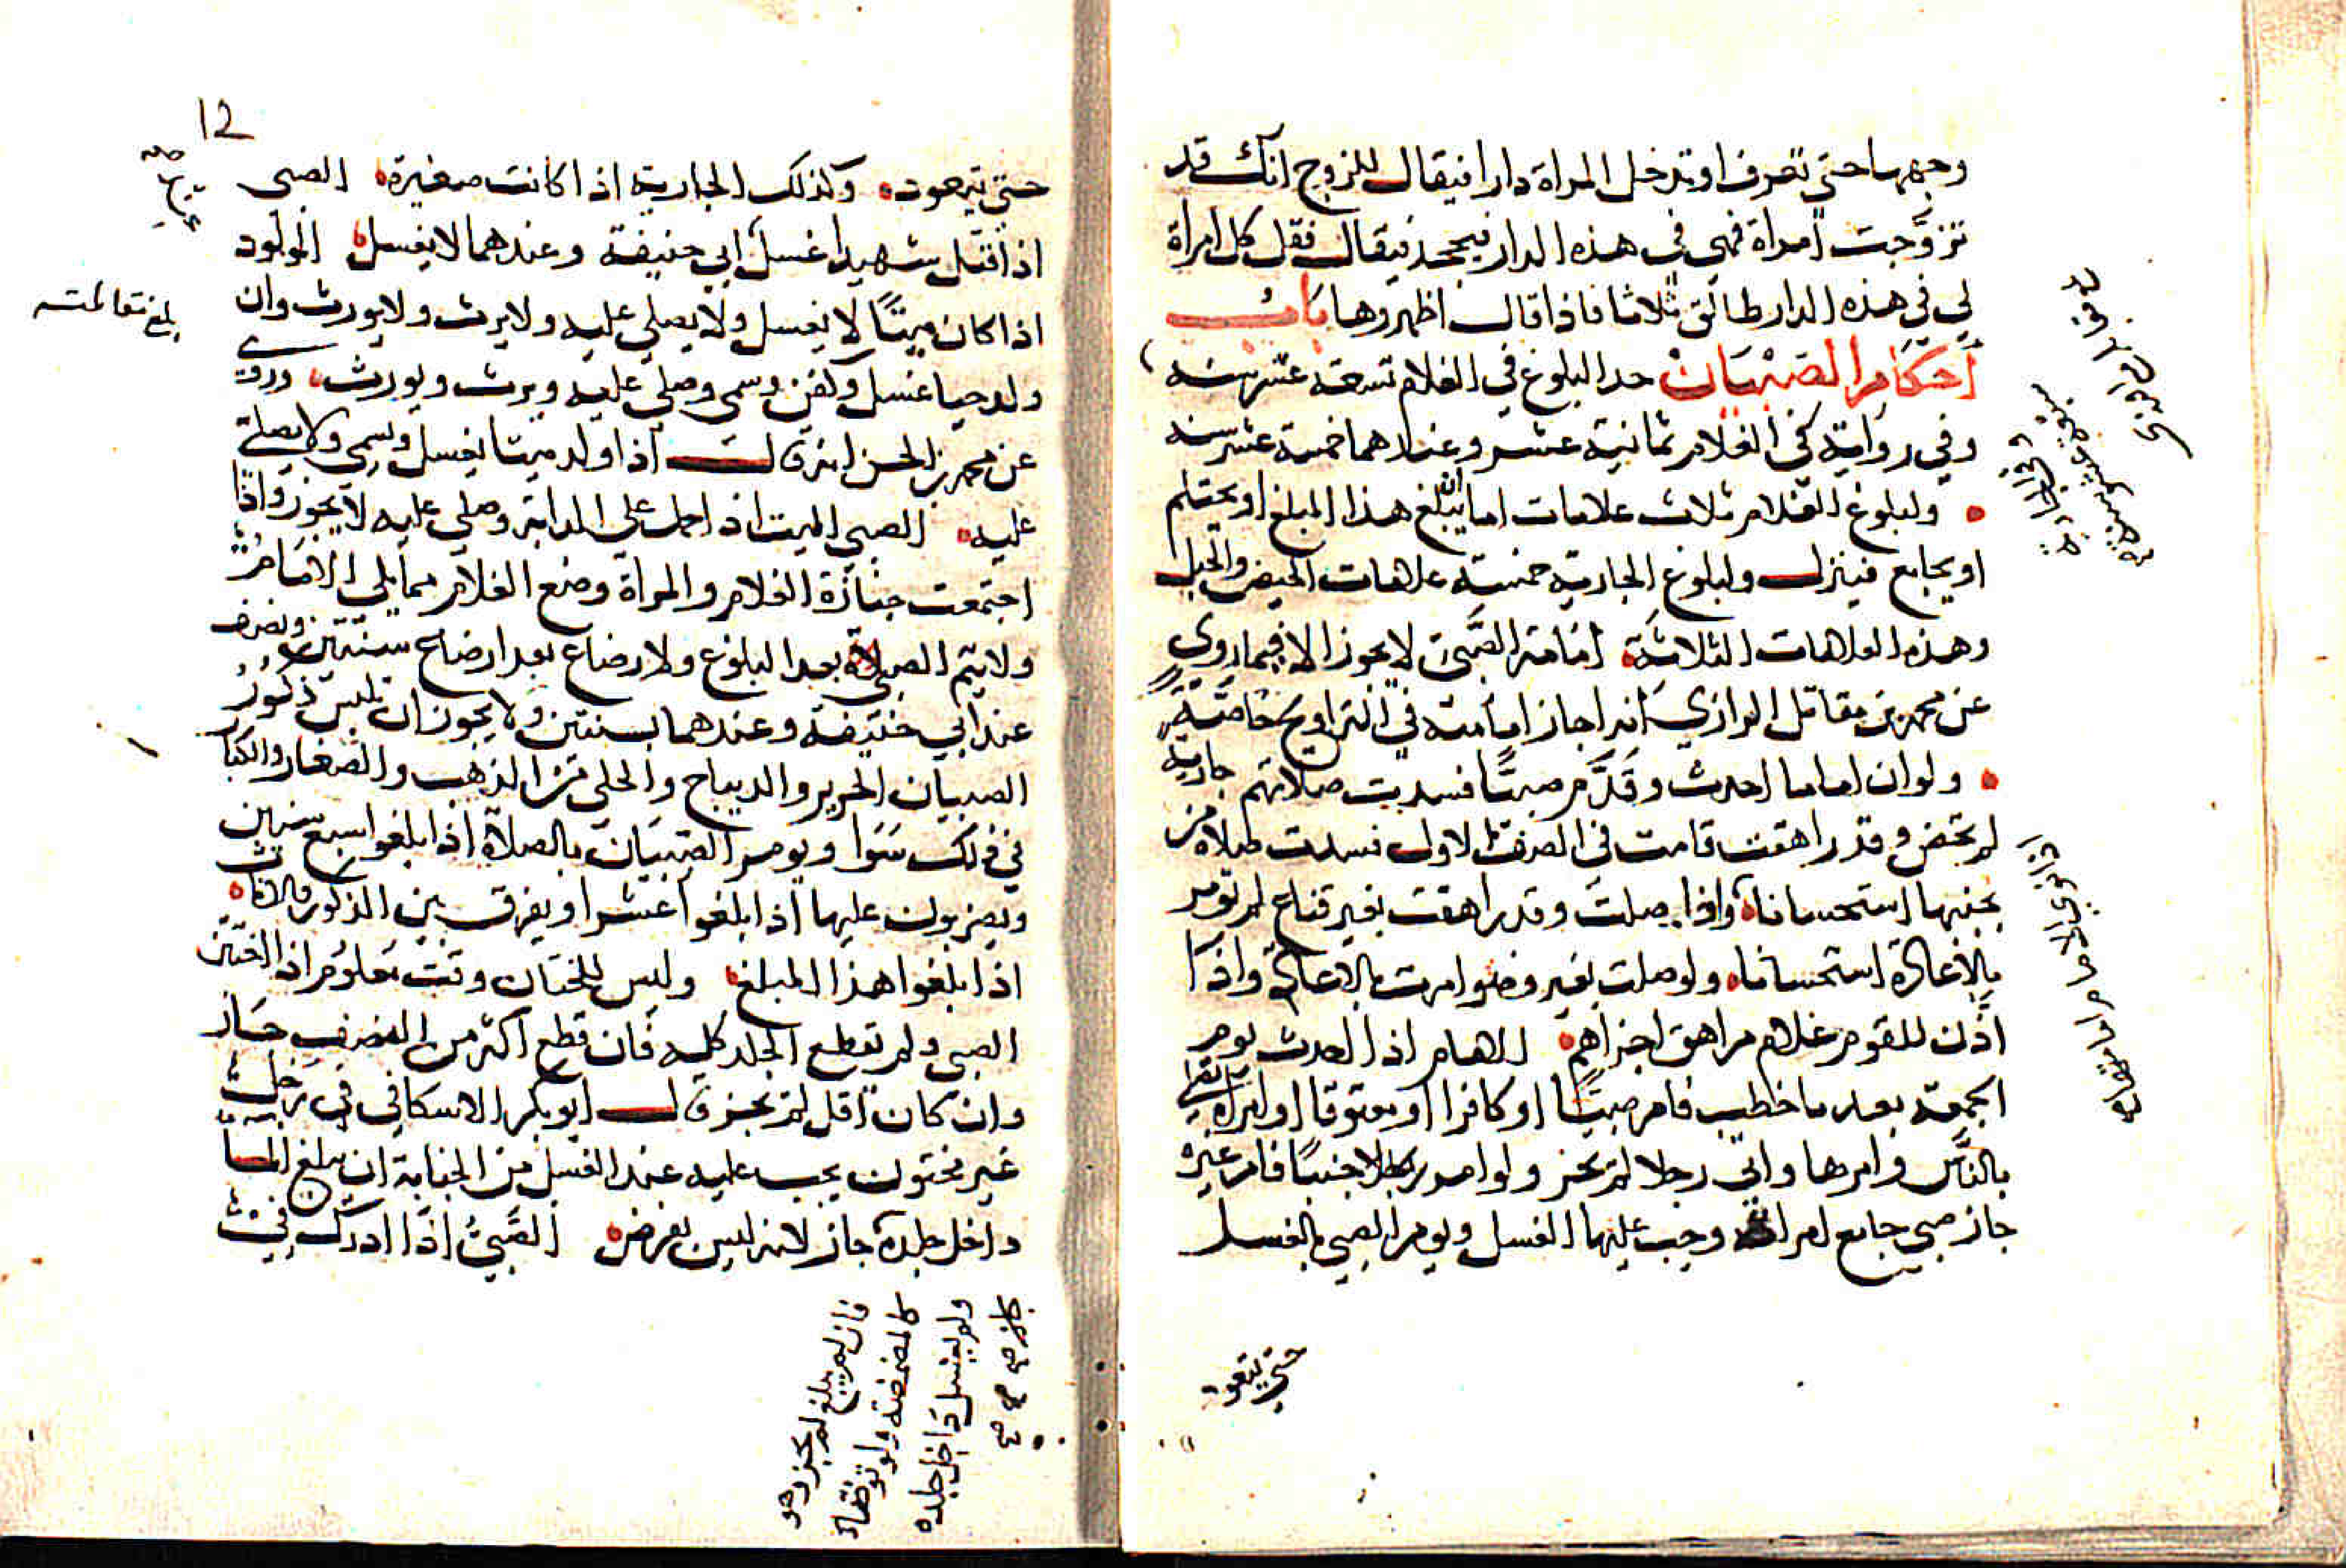 وجهها حتى تعرف او تدخل المراة دارا فيقال للزوج انك قد
تزوجت امراة فهي في هذه الدار فيجحد فيقال فقل كل امراة
لي في هذه الدار طالق ثلاثا فاذا قال اظهروها باب
احكام الصبيان حد البلوغ في الغلام تسعة عشر سنة
وفي رواية في الغلام ثمانية عشر وعندهما خمسة عشر سنة
ولبلوغ الغلام ثلاث علامات اما ان يبلغ هذا المبلغ او يحتلم
او يجامع فينزل ولبلوغ الجارية خمسة علامات الحيض والحبل
وهذه العلامات الثلاثة امامة الصبي لا يجوز الا فيما روي
عن محمد بن مقاتل الرازي انه اجاز امامته في التراويح خاصة
ولو ان اماما احدث وقدم صبيا فسدت صلاتهم جارية
لم تحض وقد راهقت قامت في الصف الاول فسدت صلاة من
بجنبها استحسانا واذا صلت وقد راهقت بغير قناع لم تومر
بالاعادة استحسانا ولو صلت بغير وضو امرت بالاعادة واذا
اذن للقوم غلام مراهق اجزاهم الامام اذا احدث يوم
الجمعة بعد ما خطب فامر صبيا او كافرا او معتوقا او امراة
بالناس وامرها واتى رجلا لم يجز ولو امر رجلا جنبا فامر غيره
جاز صبي جامع امراة وجب عليها الغسل ويومر الصبي بالغسل
حتى يتعود
12
حتى يتعود وكذلك الجارية اذا كانت صغيرة الصبي
اذا قتل شهيدا غسل ابي حنيفة وعندهما لا يغسل المولود
اذا كان ميتا لا يغسل ولا يصلي عليه ولا يرث ولا يورث وان
ولد حيا غسل وكفن وسمي وصلي عليه ويرث ويورث وروي
عن محمد بن الحسن انه قال اذا ولد ميتا يغسل ويسمى ولا يصلى
عليه الصبي الميت اذا حمل على الدابة وصلي عليه لا يجوز واذا
اجتمعت جنازة الغلام والمراة وضع الغلام مما يلي الامام
ولا يتم الصبي بعد البلوغ ولا رضاع بعد ارضاع سنتين ونصف
عند ابي حنيفة وعندهما بسنتين ولا يجوز ان يلبس ذكور
الصبيان الحرير والديباج والحلي من الذهب والصغار والكبار
في ذلك سوا ويومر الصبيان بالصلاة اذا بلغوا سبع سنين
ويضربون عليها اذا بلغوا عشرا ويفرق بين الذكور والاناث
اذا بلغوا هذا المبلغ وليس للختان وقت معلوم اذا اختتن
الصبي ولم تقطع الجلد كله فان قطع اكثر من النصف جاز
وان كان اقل لم يجز قال ابو بكر الاسكافي في رجل
غير مختون يجب عليه عند الغسل من الجنابة ان يبلغ الما
داخل جلدة جاز لانه ليس بفرض الصبي اذا ادرك في
فان لم يبلغ لم يجز وهو
كالمضمضة ولو توضا
ولم يغسل داخل جلده
جاز صح صح صح